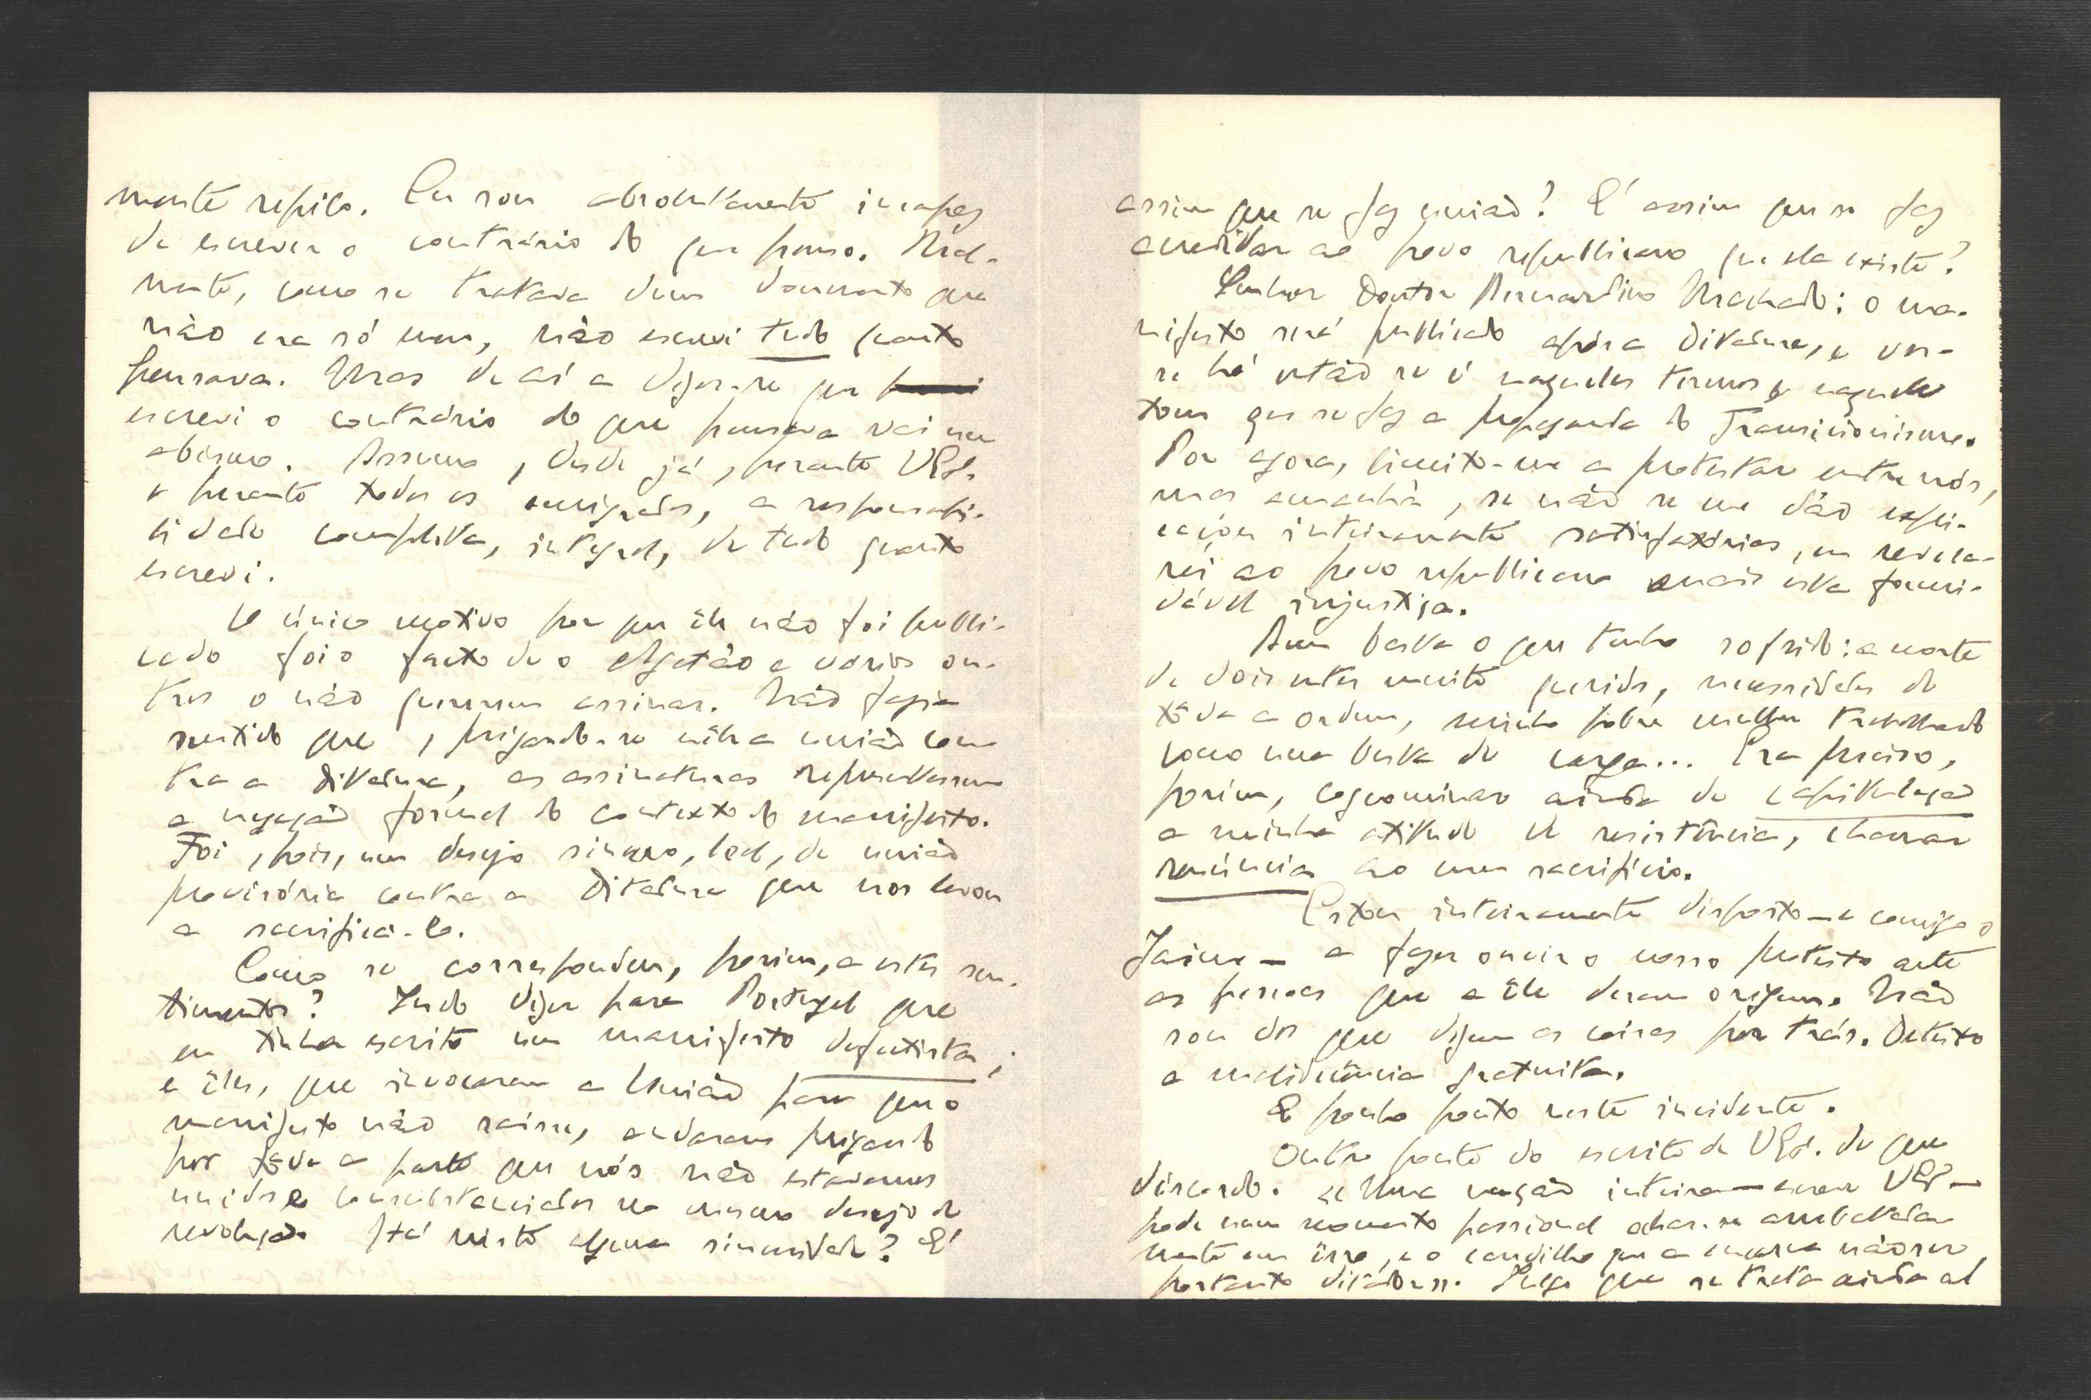 mente repilo. Eu sou absolutamente incapaz
de escrever o contrário do que penso. Real-
mente, como se tratava dum documento que
não era só meu, não escrevi tudo quanto
pensava. Mas de aí a dizer-se que
escrevi o contrário do que pensava vai um
abismo. Assumo, desde já, perante VExª.
e perante todos os emigrados, a responsabi-
lidade completa, integral, de tudo quanto
escrevi.
O único motivo por que êle não foi publi-
cado foi o facto de o Agatão e vários ou-
tros o não quererem assinar. Não fazia
sentido que, prégando-se nêle a união con-
tra a Ditadura, as assinaturas representassem
a negação formal do contexto do manifesto.
Foi, pois, um desejo sincero, leal, de união
provisória contra a Ditadura que nos levou
a sacrificá-lo.
Como se correspondeu, porém, a estes sen-
timentos? Indo dizer para Portugal que
eu tinha escrito um manifesto defectista;
e êles, que invocaram a União para que o
manifesto não saísse, andaram prégando
por tôda a parte que nós não estavamos
unidos e consubstanciados no mesmo desejo de
revolução. Há nisto alguma sinceridade? É
assim que se faz união? É assim que se faz
acreditar ao povo republicano que ela existe?
Senhor Doutor Bernardino Machado: o ma-
nifesto será publicado após a Ditadura, e ver-
se há então se é naqueles termos e naquele
tom que se faz a propaganda do Transicionismo.
Por agora, limito-me a protestar entre nós,
mas amanhã, se não se me dão expli-
cações inteiramente satisfatórias, eu revela-
rei ao povo republicano mais esta formi-
dável injustiça.
Bem basta o que tenho sofrido: a morte
de dois entes muito queridos, necessidades de
tôda a ordem, minha pobre mulher trabalhando
como uma besta de carga... Era preciso,
porém, cognominar ainda de capitulação
a minha atitude de resistência, chamar
renúncia ao meu sacrifício.
Estou inteiramente disposto — e comigo o
Jaime — a fazer ouvir o nosso protesto ante
as pessoas que a êle deram origem. Não
sou dos que dizem as coisas por trás. Detesto
a maledicência gratuita.
E ponho ponto neste incidente.
Outro ponto do escrito de VExª. de que
discordo. «Uma nação inteira — escreve VExª —
pode num momento passional achar-se arrebatada-
mente em êrro, e o caudilho que a encarna não ser
portanto ditador». Julgo que se trata ainda al